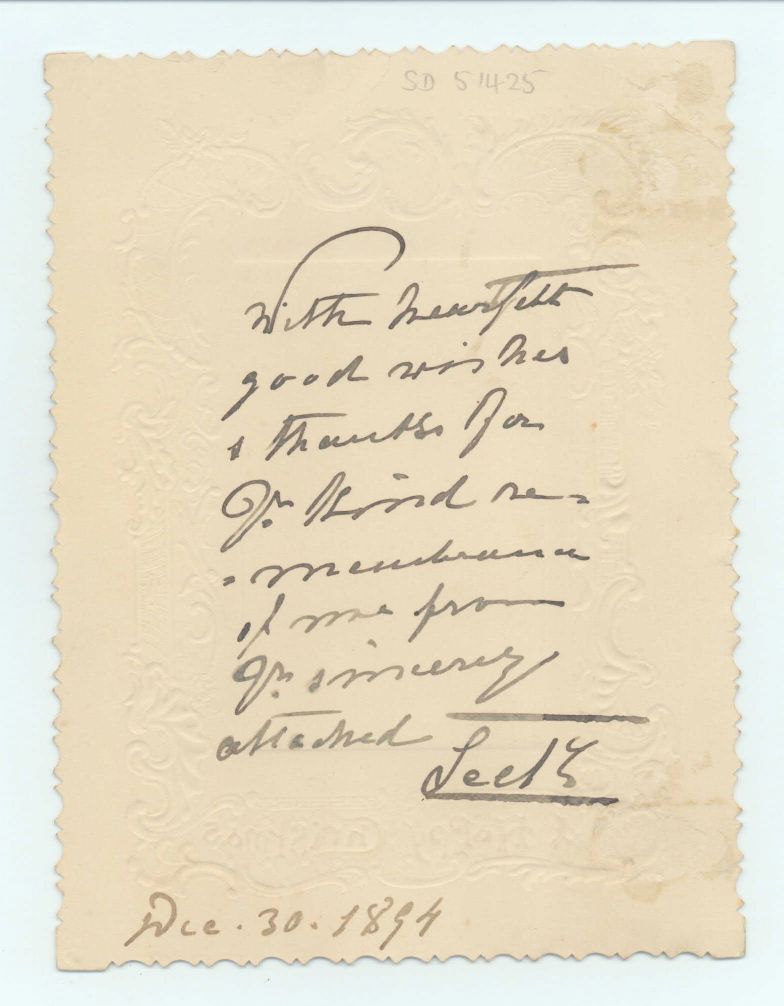 SD 51425
With heartfelt
good wishes
& thanks for
Yr. Kind re=
=membrance
of me from
Yr. sincerely
attached
Dec. 30. 1894